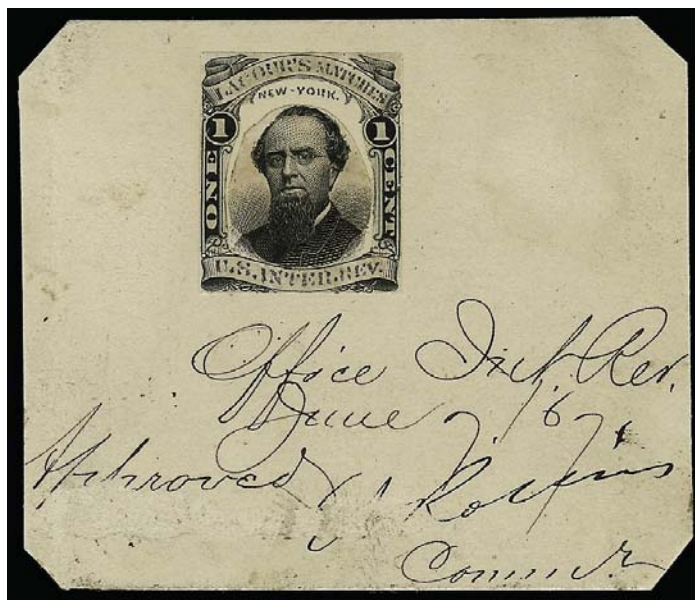 LACOUR'S MATCHES
NEW-YORK.
1 1
ONE CENT
U.S. INTER. REV.
Office Int Rev.
June 7, 67,
Approved Rollins
Commr